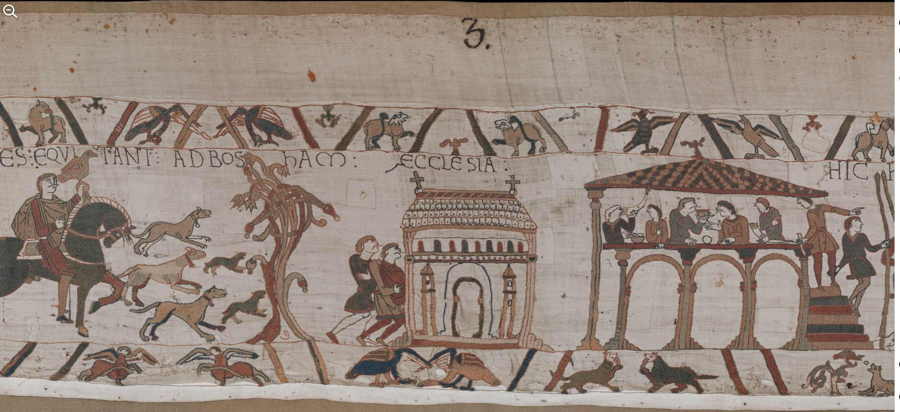 3.
ES: EQVITANT: AD BOSHAM: ECCLESIA: HIC